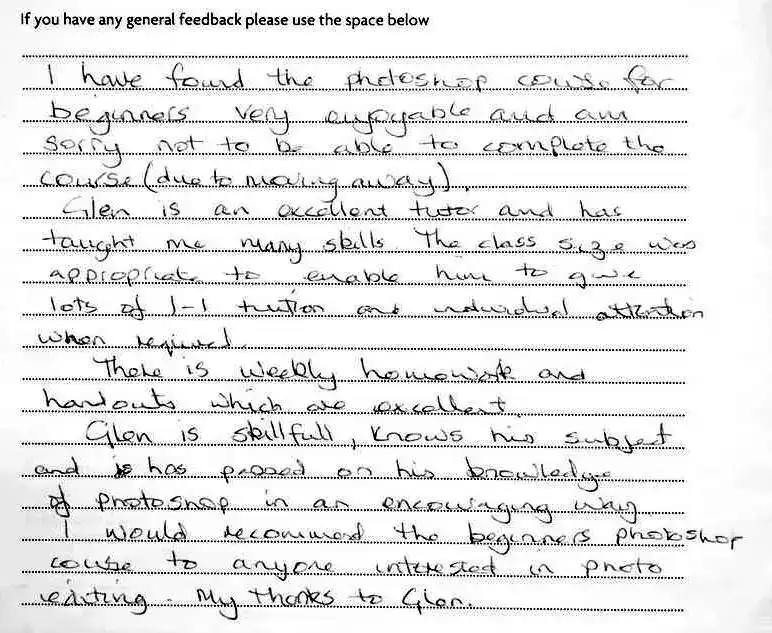 If you have any general feedback please use the space below
I have found the photoshop course for
beginners very enjoyable and am
sorry not to be able to complete the
course (due to moving away).
Glen is an excellent tutor and has
taught me many skills. The class size was
appropriate to enable him to give
lots of 1-1 tuition and individual attention
when required.
There is weekly homework and
handouts which are excellent.
Glen is skillfull, knows his subject
and has passed on his knowledge
of photoshop in an encouraging way
I would recommend the beginners photoshop
course to anyone interested in photo
editing. My thanks to Glen.